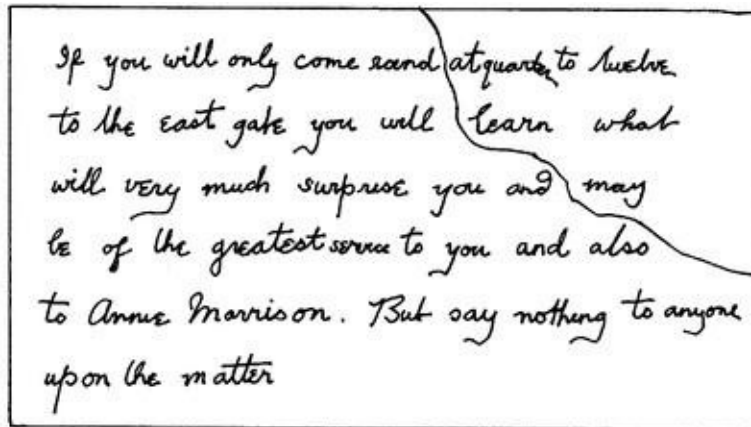 If you will only come round at quarter to twelve
to the east gate you will learn what
will very much surprise you and may
be of the greatest service to you and also
to Annie Morrison. But say nothing to anyone
upon the matter